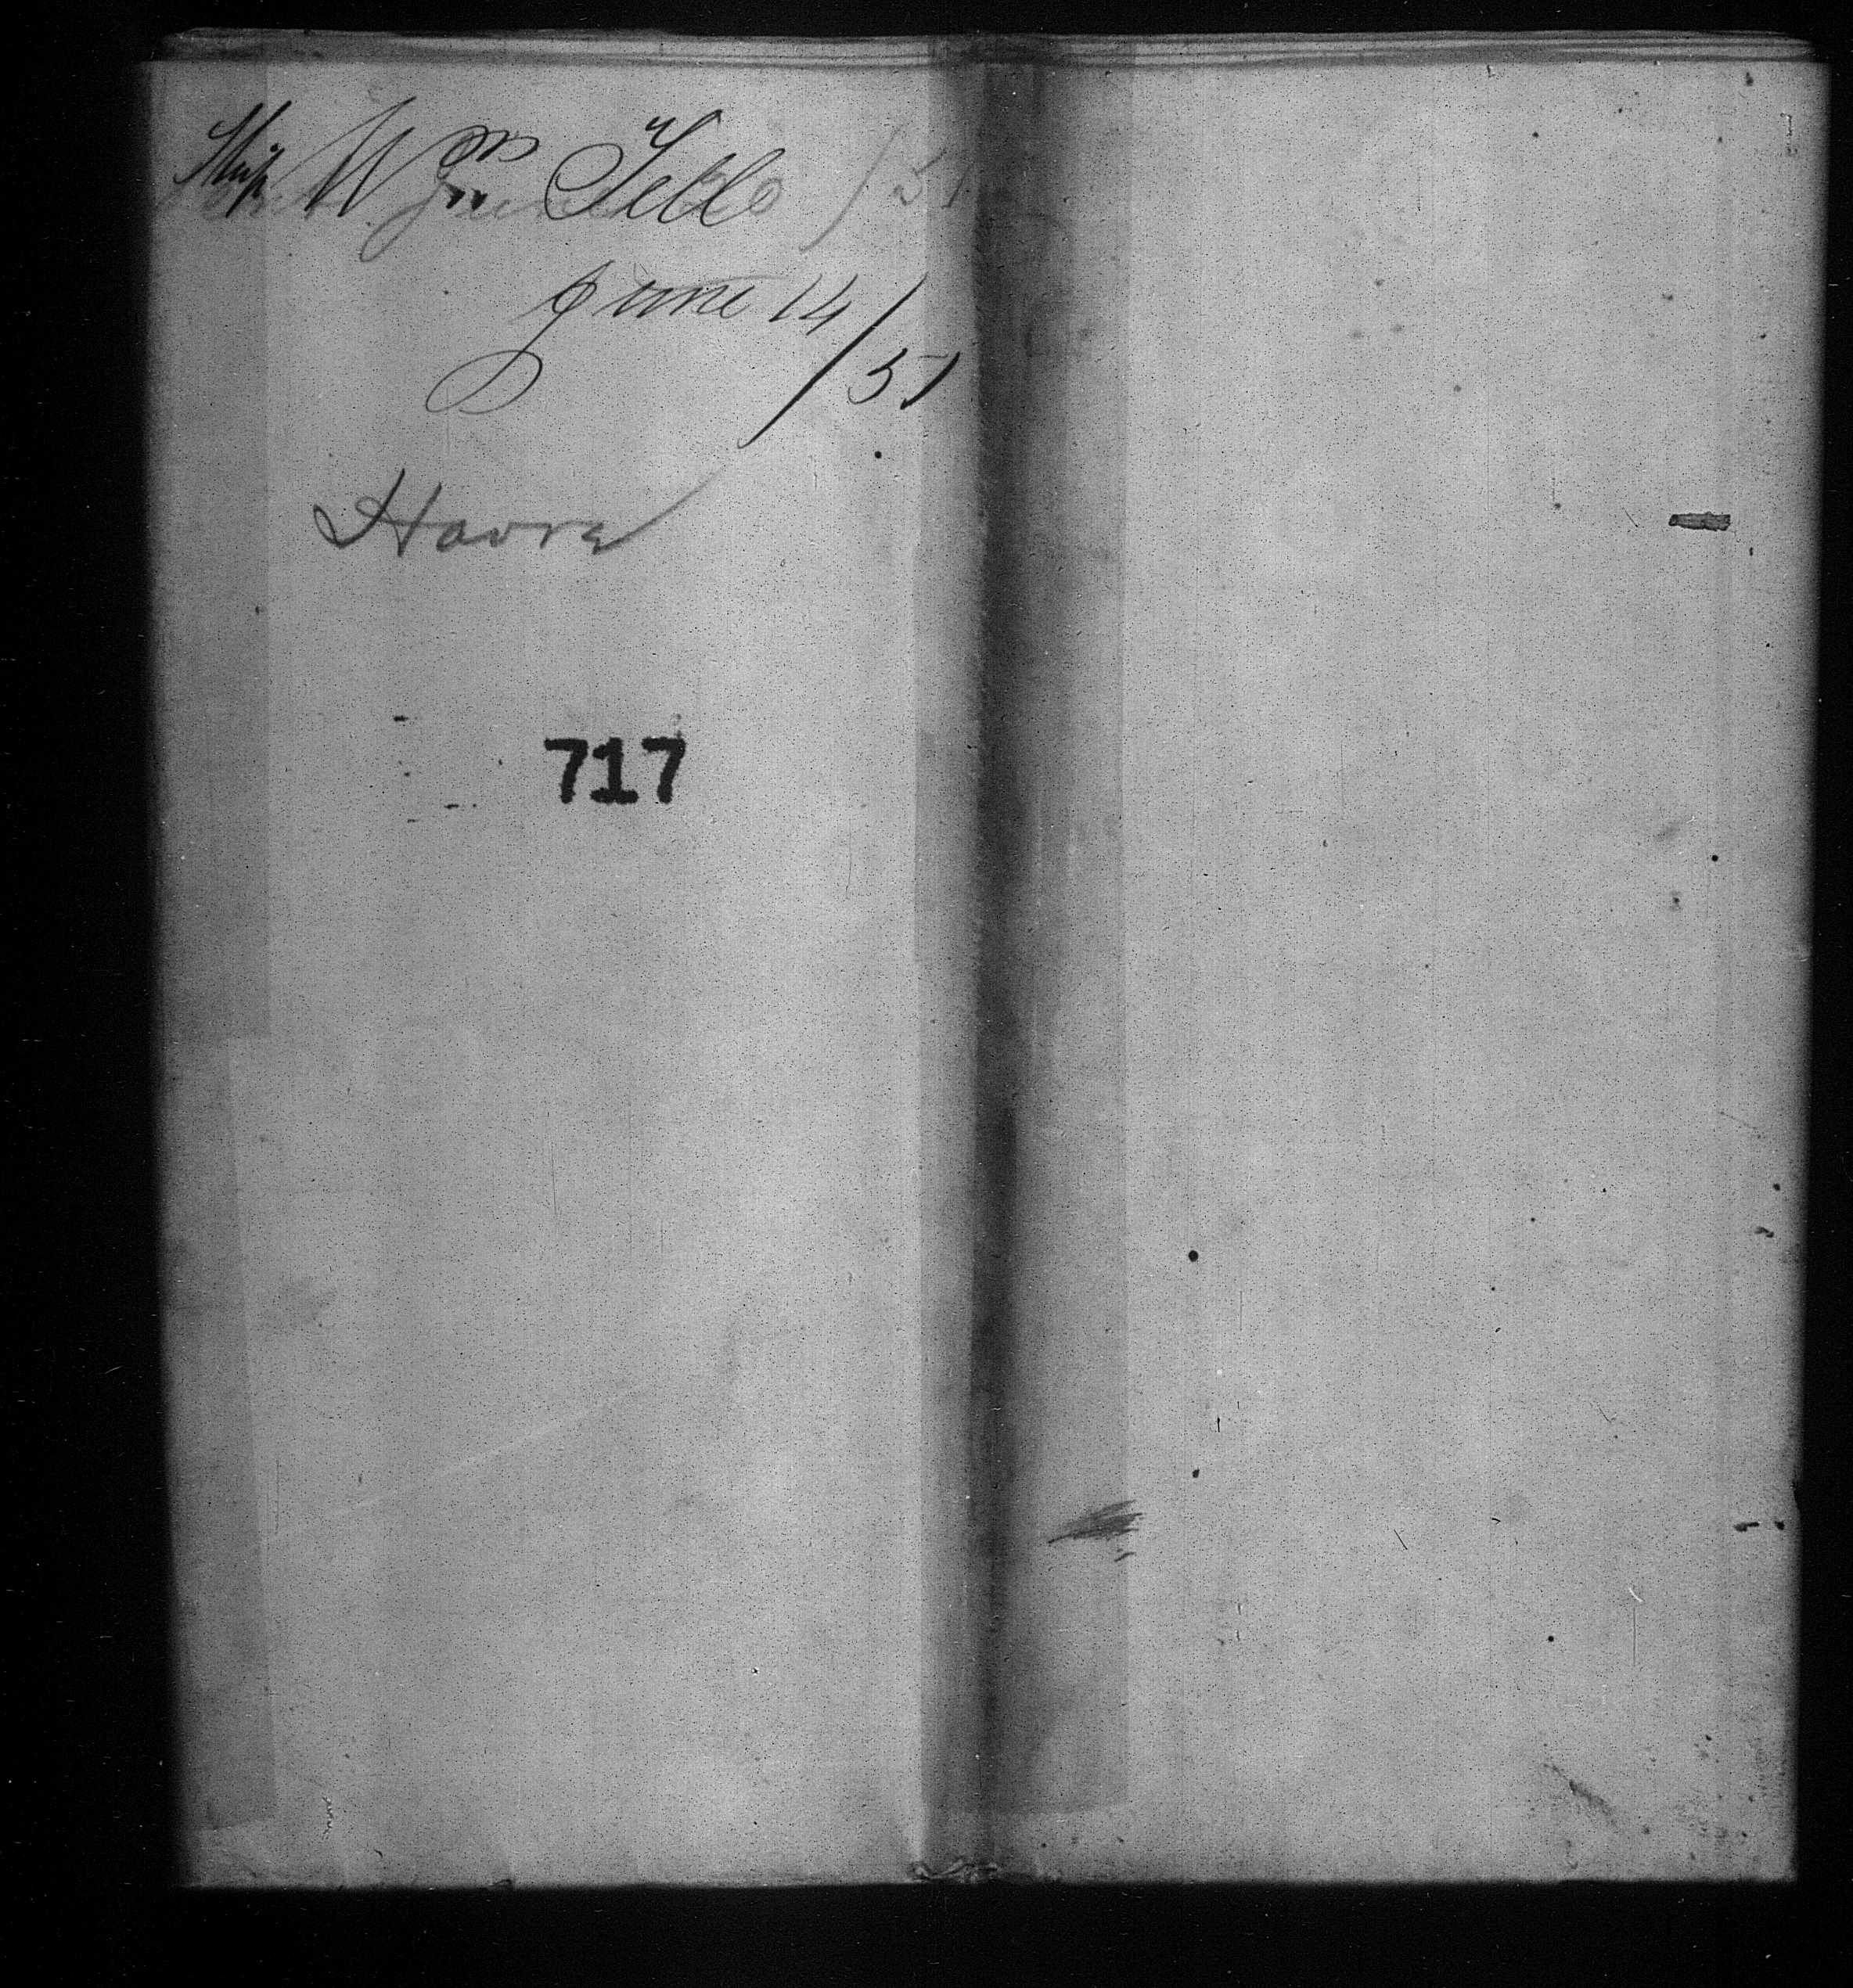 Ship Wm Tell /51
June 14/
/51
Havre
717